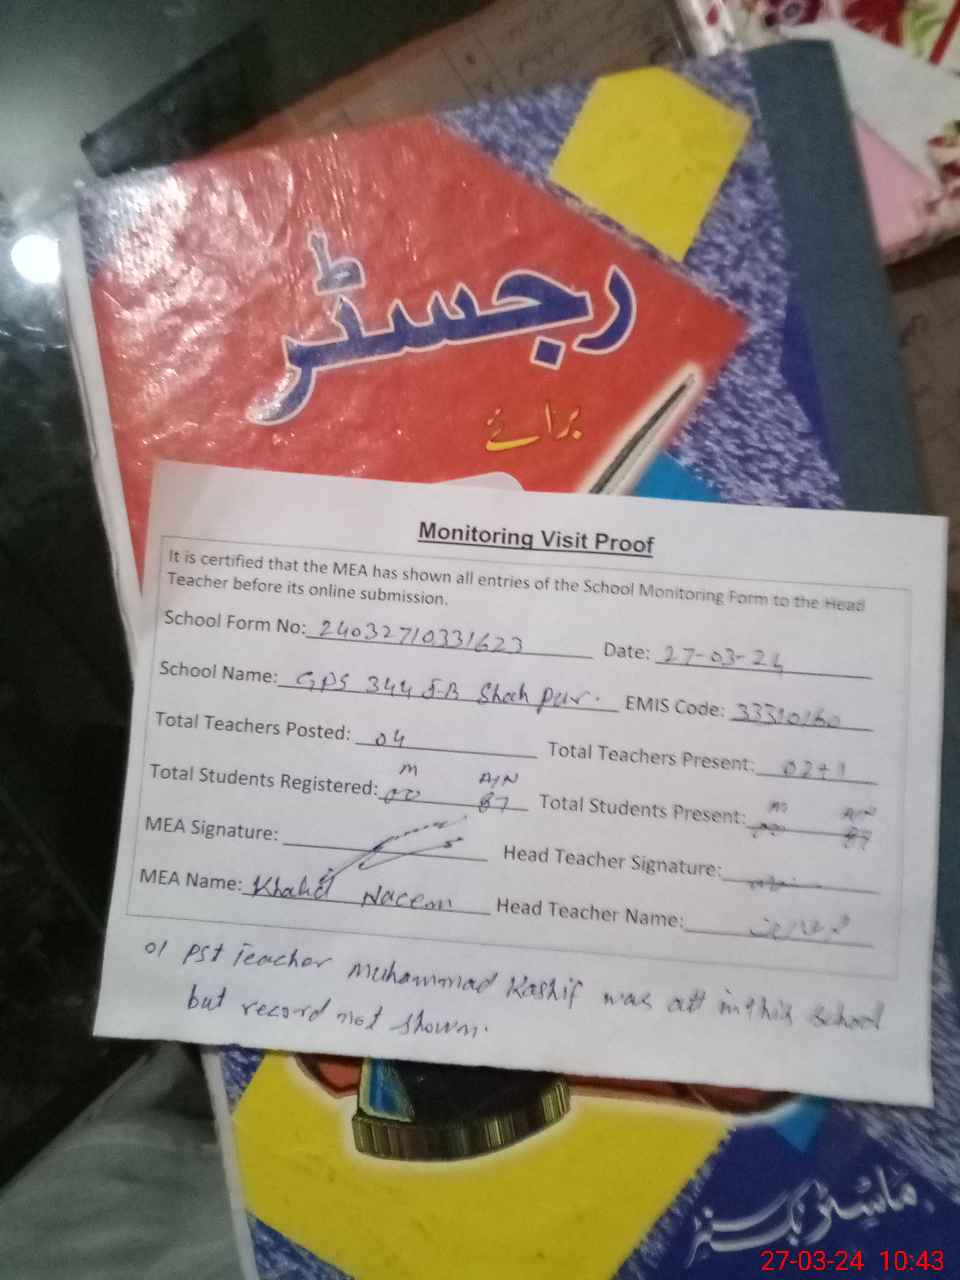 رجسٹر
برائے
Monitoring Visit Proof
It is certified that the MEA has shown all entries of the School Monitoring Form to the Head
Teacher before its online submission.
School Form No: 24032710331623 Date: 27-03-24
School Name: GPS 344 J-B Shah pur. EMIS Code:
Total Teachers Posted: 04 Total Teachers Present: 02+1
M A/N M A/N
Total Students Registered: 00 87 Total Students Present: 00 87
MEA Signature: Head Teacher Signature:
MEA Name: Khalid Naeem Head Teacher Name:
01 PST Teacher Muhammad Kashif was att in this school
but record not shown.
ماسٹر بک سنٹر
27-03-24 10:43